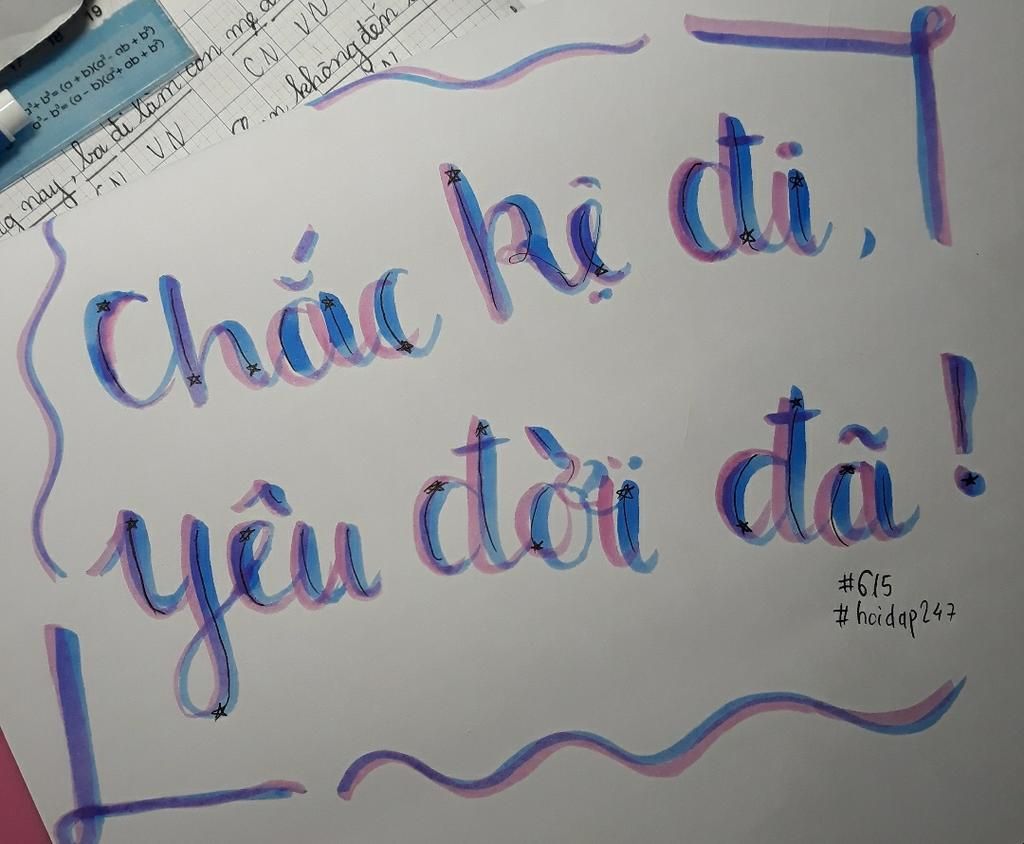 19
18
17
a³ + b³ = (a + b)(a² - ab + b²)
a³ - b³ = (a - b)(a² + ab + b²)
CN VN
nay, ba đi làm con mẹ
CN VN
không đến
Chắc kệ đi,
yêu đời đã!
#615
#hoidap247